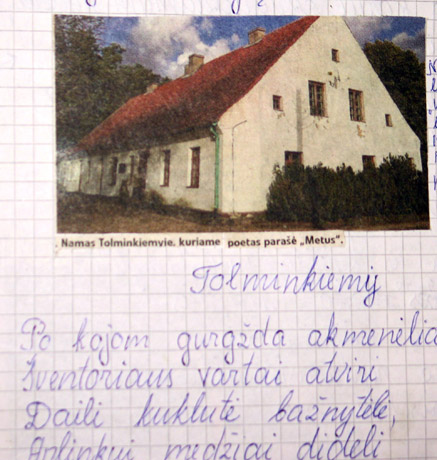 . Namas Tolminkiemvie. kuriame poetas parašė „Metus".
Tolminkiemy
Po kojom gurgžda akmenėlia
Šventoriaus vartai atviri
Daili kuklutė bažnytėlė,
Aplinkui medžiai dideli